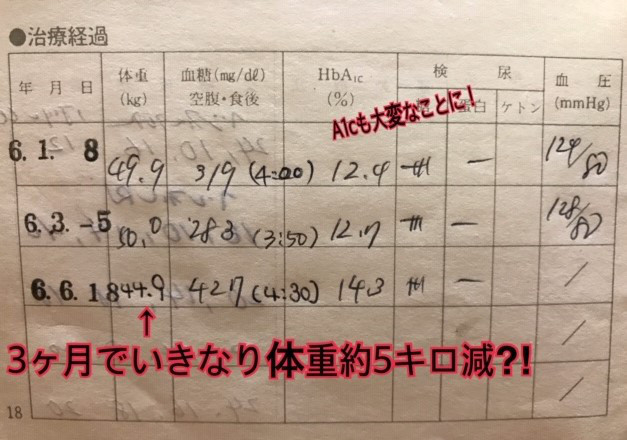 ●治療経過
年 月 日 体重 (kg) 血糖(mg/dl) 空腹・食後 HbA1C (%) 検 尿 蛋白 ケトン 血 圧 (mmHg)
A1cも大変なことに!
6. 1. 8 49.9 319 (4:00) 12.4 卅 — 124/80
6. 3. -5 50.0 283 (3:50) 12.7 卅 — 128/80
6. 6. 18 44.9 427 (4:30) 14.3 卅 — /
↑
3ヶ月でいきなり体重約5キロ減?!
/
/
18